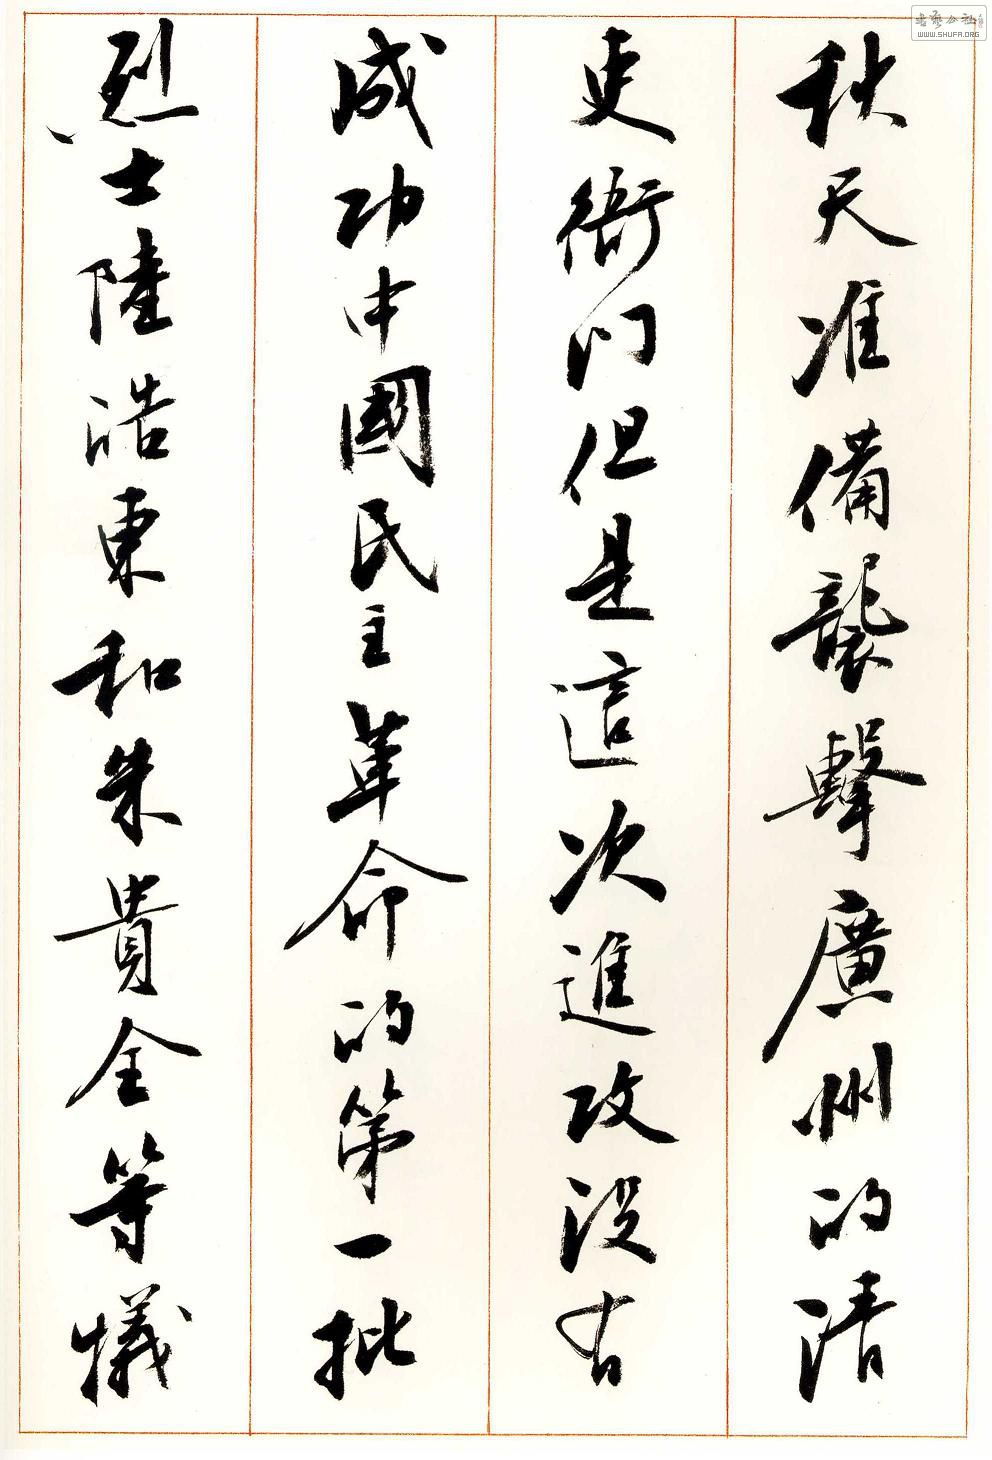 秋天准備襲擊廣州的清
吏衙门但是這次進攻没有
成功中國民主革命的第一批
烈士陸浩東和朱貴全等犠
WWW.SHUFA.ORG